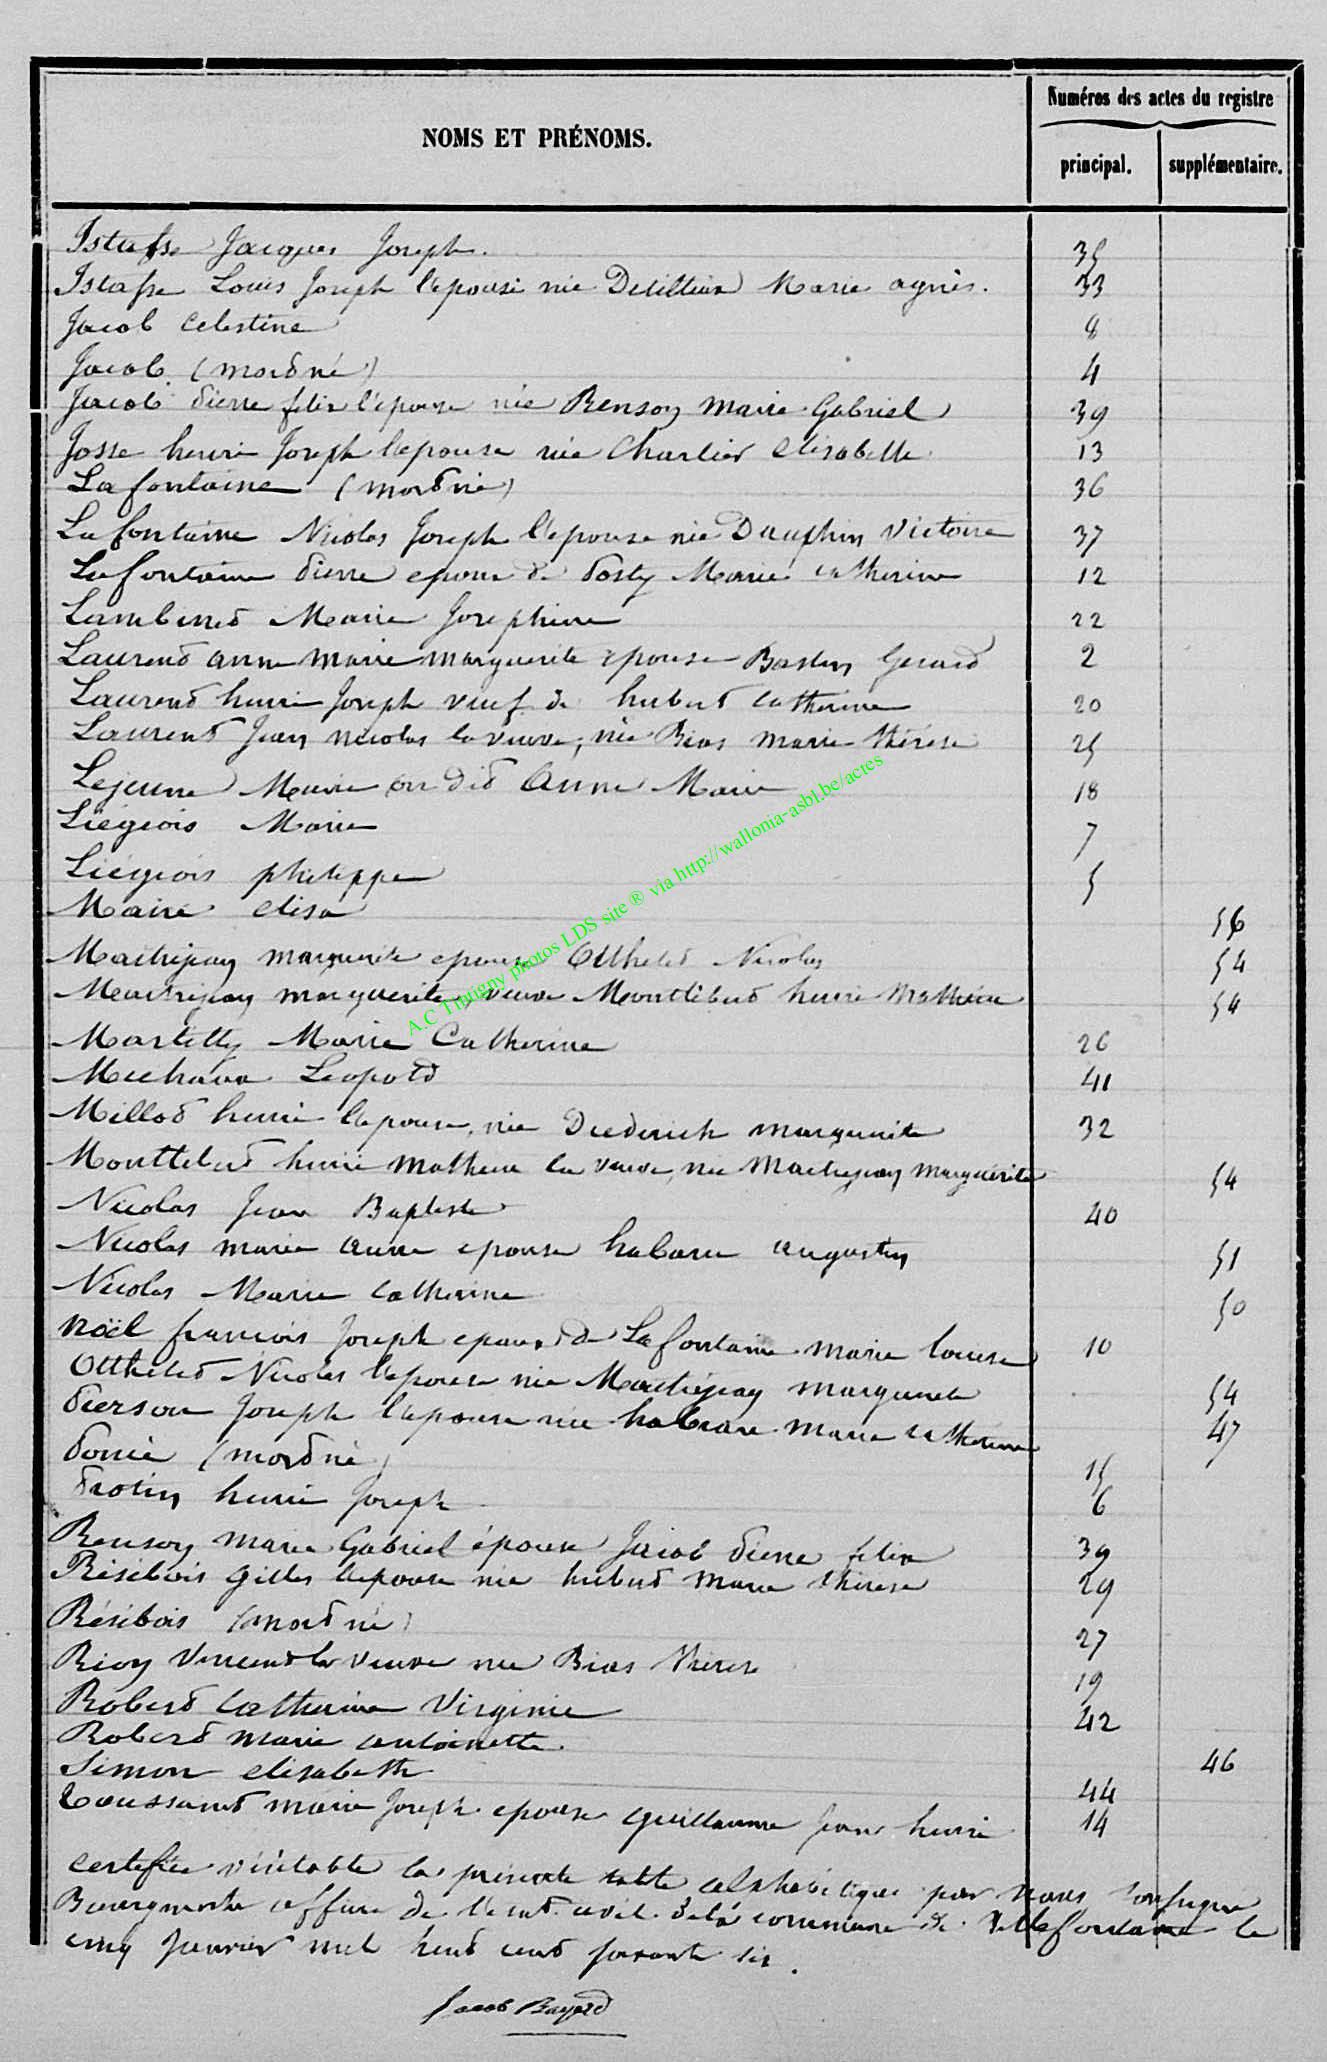 Numéros des actes du registre
NOMS ET PRÉNOMS.
principal. supplémentaire.
Istasse Jacques Joseph. 35
Istasse Louis Joseph l'epouse née Marie agnès. 33
Jacob Celestine 8
Jacob (mordné) 4
Jacob Pierre felix l'epouse née Renson Marie Gabriel 39
Josse henri Joseph l'epouse née Charlier elisabette 13
Lafontaine (mordné) 36
Lafontaine Nicolas Joseph l'epouse née Dauphin Victoire 37
Lafontaine Pierre epoux de Posty Marie catherine 12
Lambined Marie Josephine 22
Laurend anne marie marguerite epouse Bastin Gerard 2
Laurend henri Joseph veuf de huberd Catherine 20
Laurend Jean nicolas la veuve, née Bias marie thérèse 25
Lejeune Marie on did Anne Marie 18
Liégeois Marie 7
Liégeois philippe 5
Maire elisa 56
Maitrejean marguerite epouse Ottheled Nicolas 54
Maitrejean marguerite, veuve henri Mathieu 54
Martilly Marie Catherine 26
Michaux Leopold 41
Millod henri l'epouse, née Diederich marguerite 32
henri mathieu la veuve, née Maitrejean marguerite 54
Nicolas Jean Baptiste 40
Nicolas marie anne epouse habaru augustin 51
Nicolas Marie Catherine 50
noël francois Joseph epoux de Lafontaine marie louise 10
Ottheled Nicolas l'epouse née Maitrejean marguerite 54
Pierson Joseph l'epouse née marie catherine 47
Poncé (mordné) 15
Protin henri Joseph 6
Renson marie Gabriel épouse Jacob Pierre felix 39
Résibois Gilles l'epouse née huberd marie thérèse 29
Résibois (mordné) 27
Rion Vincend la veuve née Bias thérèse 19
Roberd Catherine Virginie 42
Roberd marie antoinette 46
Simon elisabeth 44
Toussaind marie Joseph epouse Guillaume Jean henri 14
certifiée véritable la présente table alphabétique par nous soussigné
Bourgmestre officier de l'etat civil de la commune de Villefontaine le
cinq Janvier mil huid cend soixante six.
Jacob Bayard
A.C Tintigny photos LDS site ® via http://wallonia-asbl.be/actes